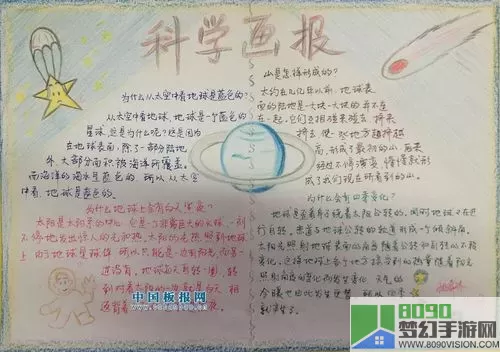 科学画报
为什么从太空中看地球是蓝色的?
从太空中看地球,地球是一个蓝色的
星球,这是为什么呢?这是因为
在地球表面,除了一部分陆地
外,大部分面积被海洋所覆盖。
而海洋的海水呈蓝色的,所以从太空
中看,地球是蓝色的。
为什么地球上会有白天黑夜?
太阳是太阳系的中心,也是一个非常巨大的火球,一刻
不停地发出惊人的光和热,太阳的光照照到地球
上,由于地球是球体,所以只能是一面
没有,地球每天有
到对着太阳的一边就是白天,相
山是怎样形成的?
大约在几亿年以前,地球表
面的陆地是一大块一大块的并不连
在一起,它们互相碰来碰去,挤来
挤去,使一些地方越挤越
高,形成了最初的山,后来
经过不停演变,慢慢就形
成了我们现在所看到的山。
为什么会有四季变化?
地球是在着
进行自转,由于地球公转的轨道形成一个倾斜角,
太阳光照射地球表面的角度随着公转
变化,这样地球上每个地方接受到的热量随着阳光
照射角度的变化而发生变化,天气的
冷暖也此发生更替,所以四季
就产生了。
中国板报网
8090
梦幻手游网
WWW.8090VISION.COM